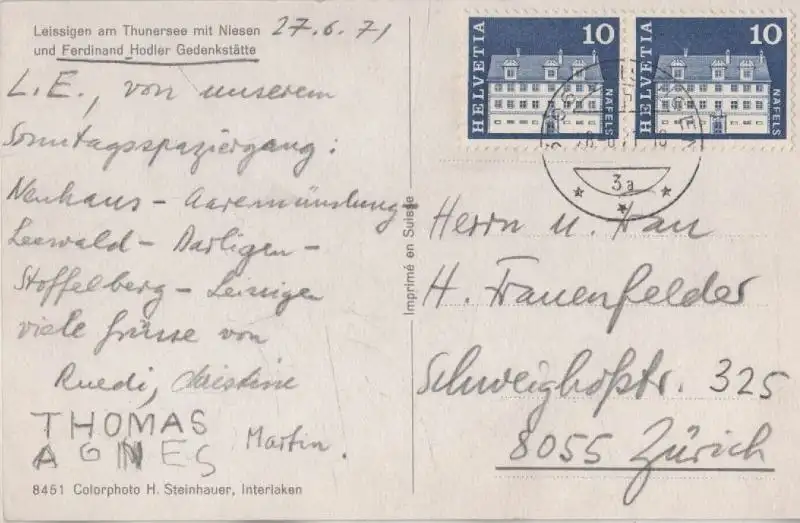 Leissigen am Thunersee mit Niesen
und Ferdinand Hodler Gedenkstätte
27.6.71
L.E., von unserem
Sonntagsspaziergang:
Neuhaus - Aaremündung -
Seewald - Därligen -
Stoffelberg - Leissigen
viele Grüsse von
Ruedi, Christine
THOMAS
AGNES Martin.
8451 Colorphoto H. Steinhauer, Interlaken
Imprimé en Suisse
HELVETIA 10 NÄFELS
HELVETIA 10 NÄFELS
3a
Herrn u. Frau
H. Frauenfelder
Schweighofstr. 325
8055 Zürich